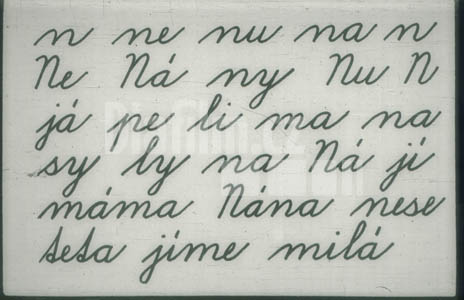 n ne nu na n
Ne Ná ny Nu N
já pe li ma na
sy ly na Ná jí
máma Nána nese
teta jíme milá